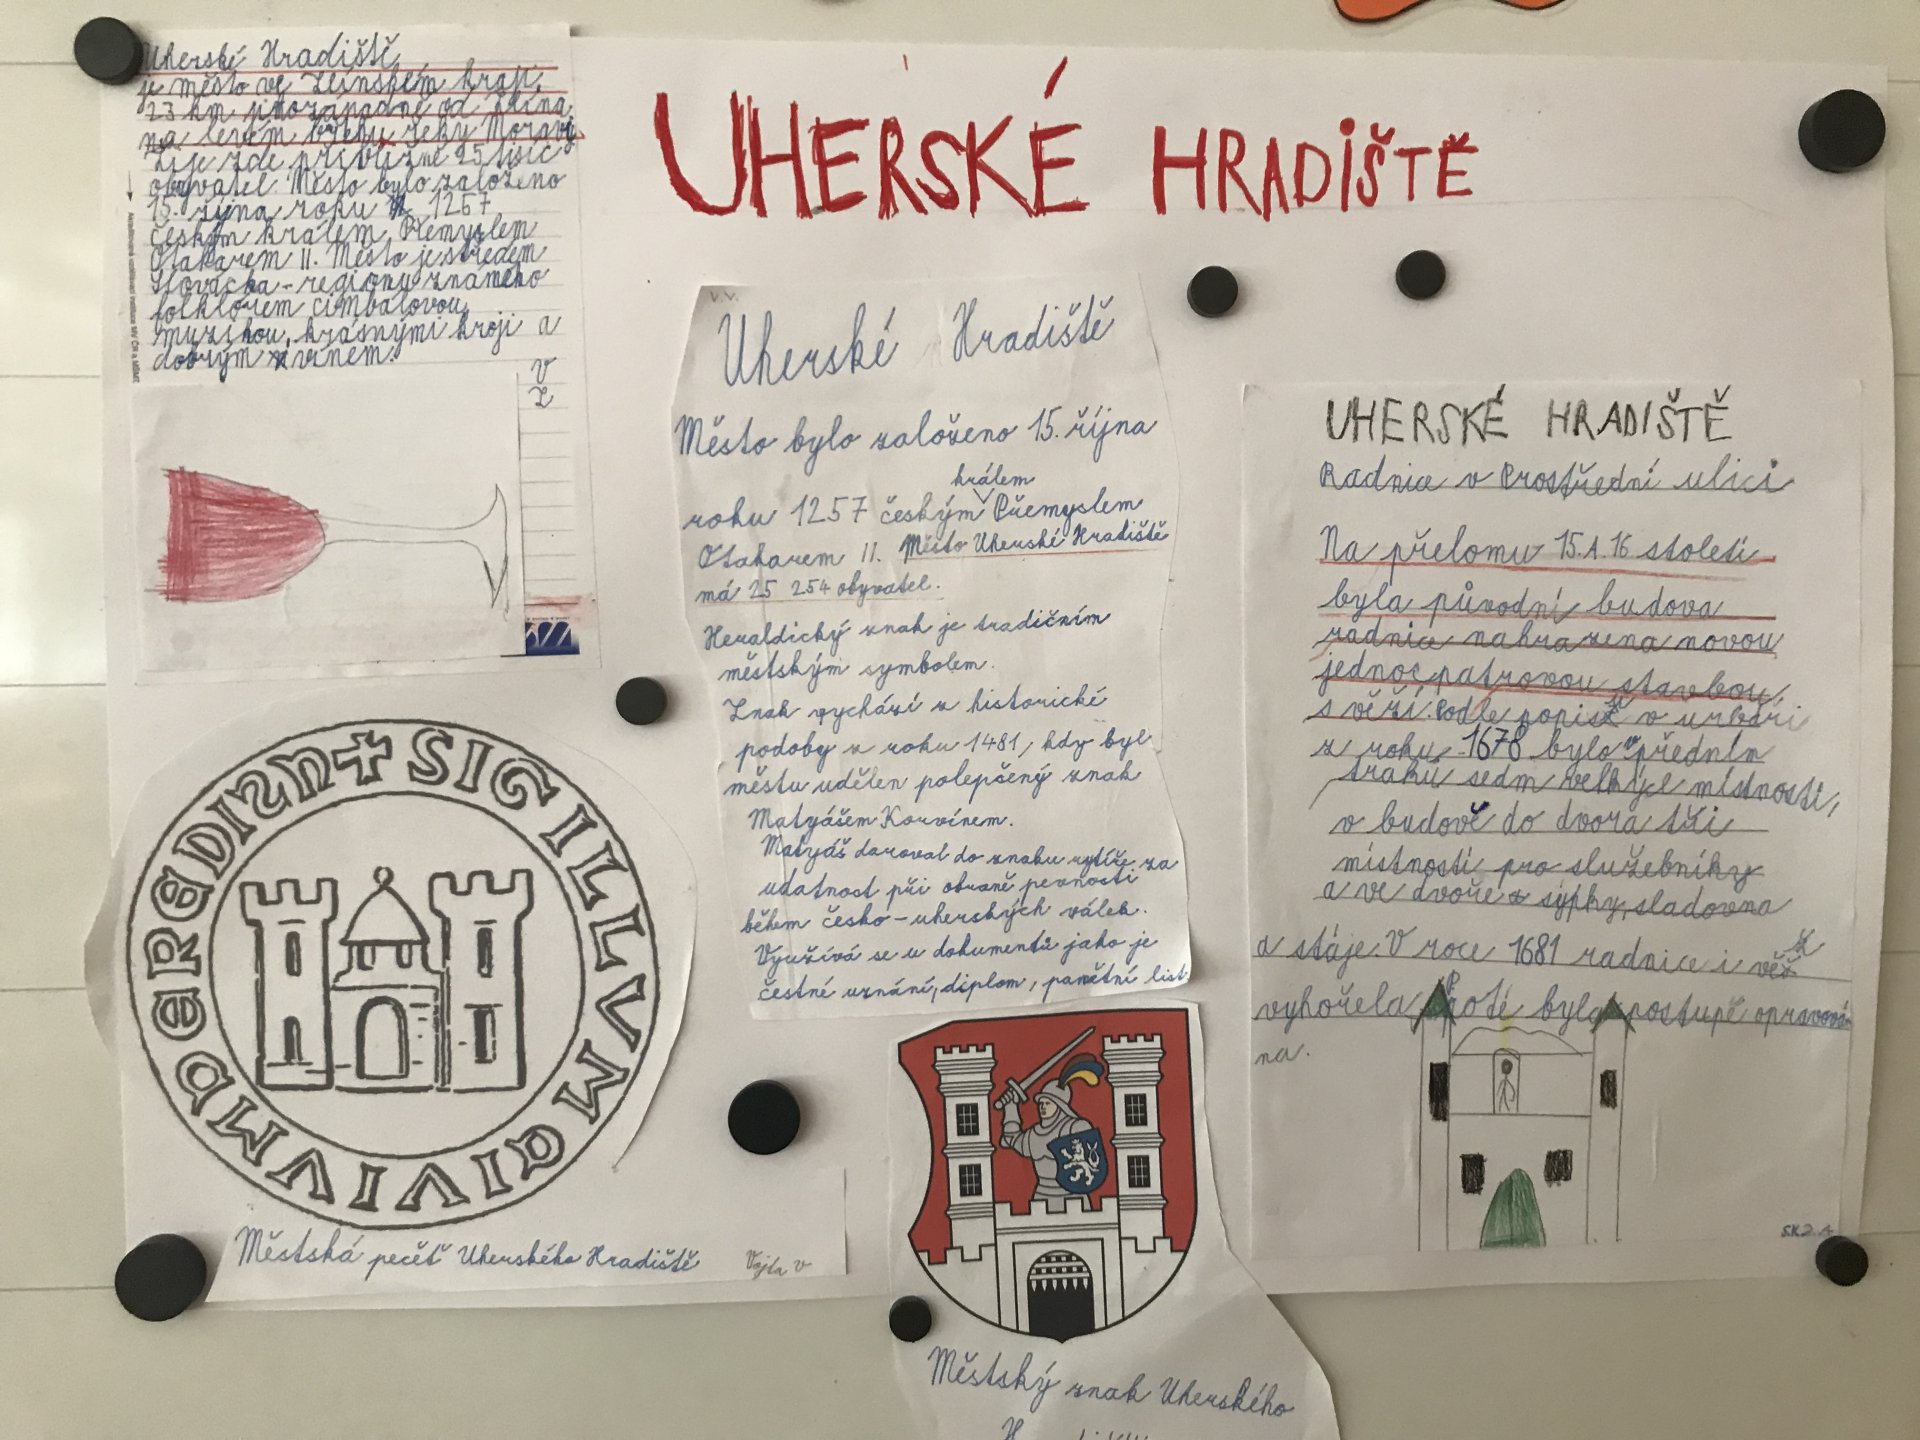 UHERSKÉ HRADIŠTĚ
Uherské Hradiště
je město ve Zlínském kraji,
23 km jihozápadně od Zlína
na levém břehu řeky Moravy.
Žije zde přibližně 25 tisíc
obyvatel. Město bylo založeno
15. října roku 1257
českým králem Přemyslem
Otakarem II. Město je středem
Slovácka - regionu známého
folklórem cimbálovou
muzikou, krásnými kroji a
dobrým vínem.
V
Z
Akreditovaná vzdělávací instituce MV ČR a MŠMT
V.V.
Uherské Hradiště
Město bylo založeno 15. října
králem
roku 1257 českým Přemyslem
Otakarem II. Město Uherské Hradiště
má 25 254 obyvatel.
Heraldický znak je tradičním
městským symbolem.
Znak vychází z historické
podoby z roku 1481, kdy byl
městu udělen polepšený znak
Matyášem Korvínem.
Matyáš daroval do znaku rytíře za
udatnost při obraně pevnosti
během česko-uherských válek.
Využívá se u dokumentů jako je
čestné uznání, diplom, pamětní list
UHERSKÉ HRADIŠTĚ
Radnice v Prostřední ulici
Na přelomu 15. A. 16 století
byla původní budova
radnice nahrazena novou
jednopatrovou stavbou
s věží. Podle popisu v urbáři
z roku 1678 bylo v předním
traktu sedm velkých místností,
v budově do dvora tři
místnosti pro služebníky
a ve dvoře sýpky, sladovna
a stáje. V roce 1681 radnice i věž
vyhořela Poté byla postupě opravová
na.
SK 2. A
✝ SIGILLVM CIVIVM DE RADISN
Městská pečeť Uherského Hradiště
Vojta V
Městský znak Uherského